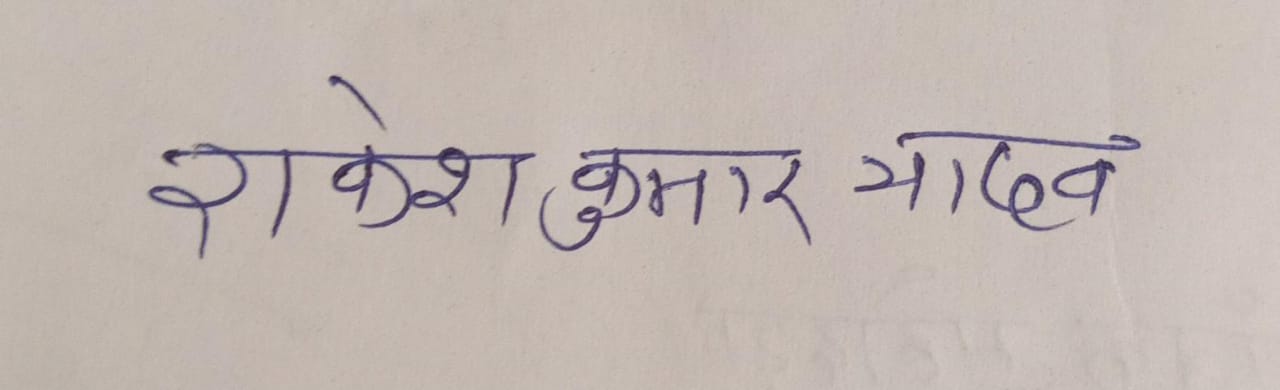 राकेश कुमार यादव